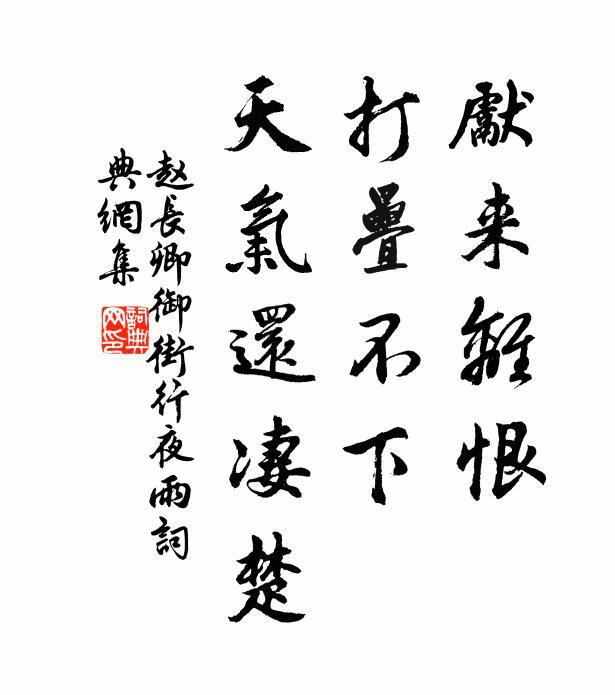 獻来離恨
打疊不下
天氣還凄楚
赵長卿御街行夜雨詞
典網集
詞典
网印